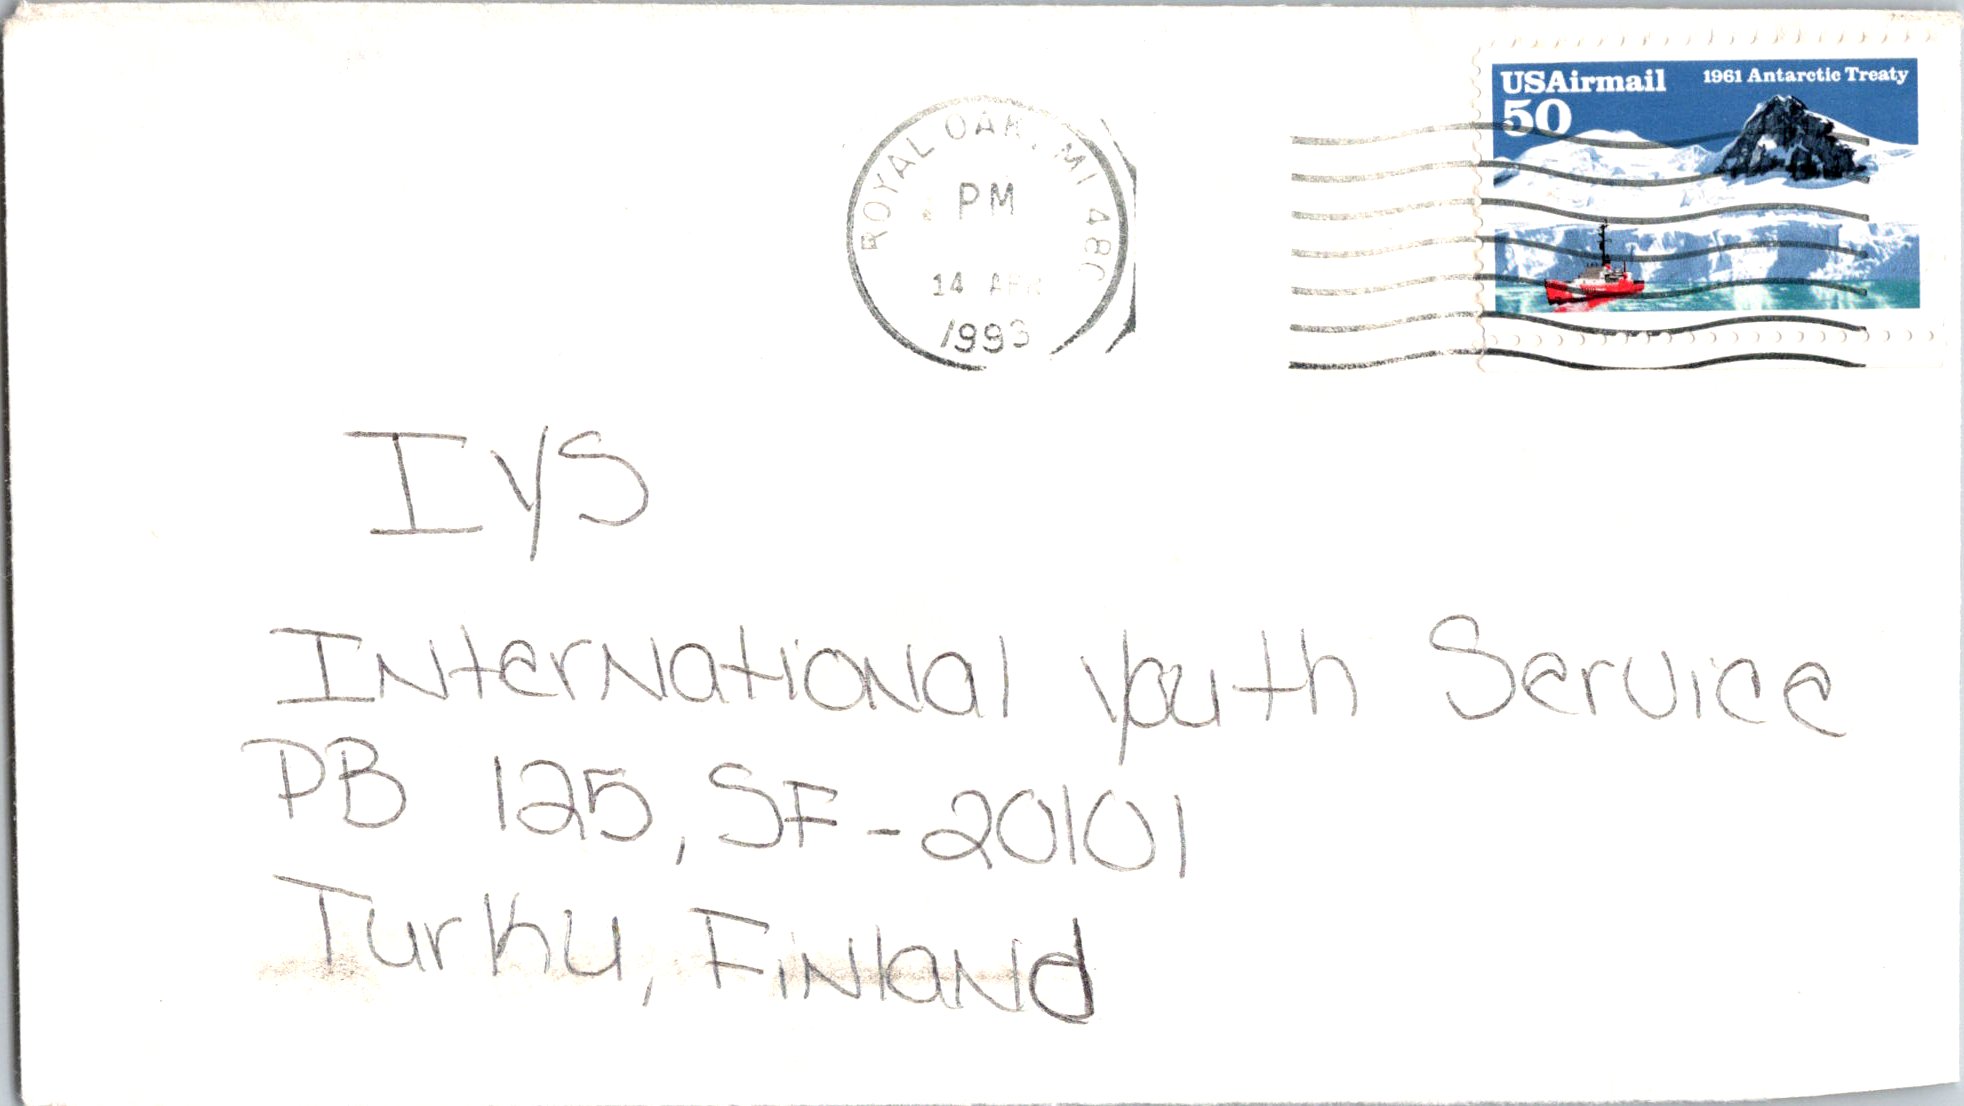 USAirmail 1961 Antarctic Treaty
50
ROYAL OAK, MI 480
PM
14 APR
1993
IYS
International Youth Service
PB 125, SF-20101
Turku, Finland